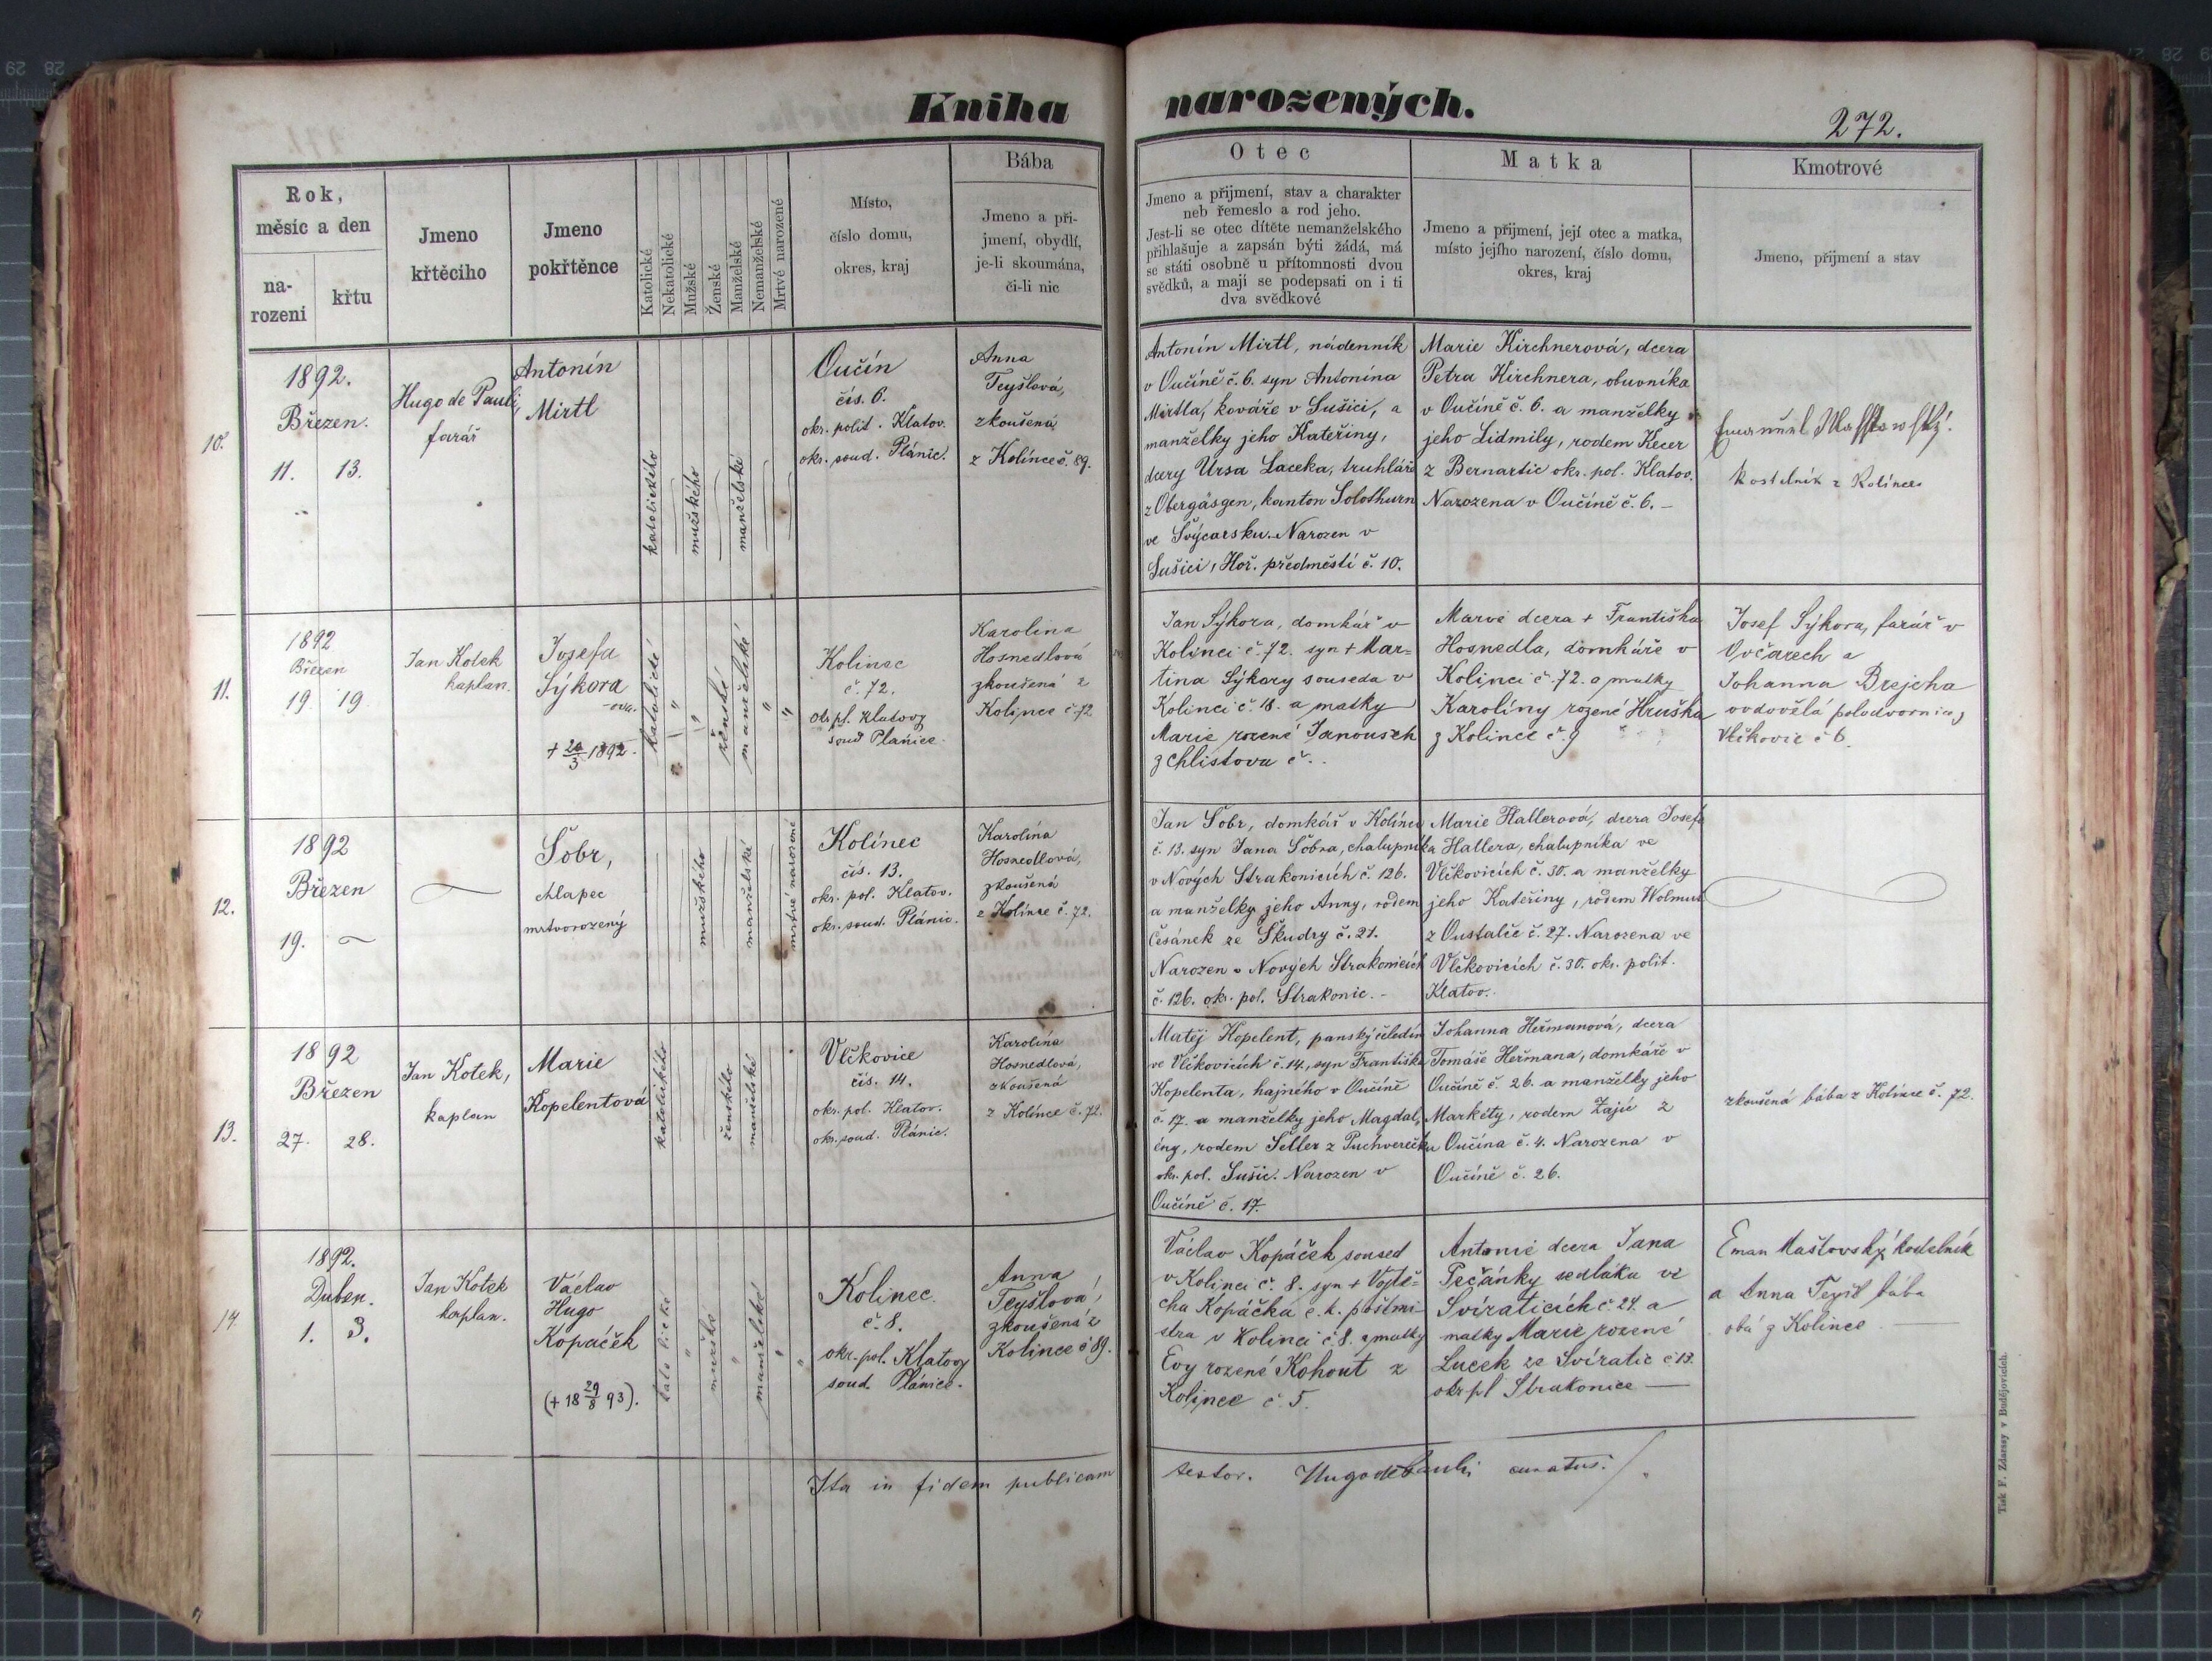 Kniha narozených.
272.
Rok,
měsíc a den
na-
rozeni
křtu
Jmeno
křtěcího
Jmeno
pokřtěnce
Katolické
Nekatolické
Mužské
Ženské
Manželské
Nemanželské
Mrtvé narozené
Místo,
číslo domu,
okres, kraj
Bába
Jmeno a při-
jmení, obydlí,
je-li skoumána,
či-li nic
Otec
Jmeno a přijmení, stav a charakter
neb řemeslo a rod jeho.
Jest-li se otec dítěte nemanželského
přihlašuje a zapsán býti žádá, má
se státi osobně u přítomnosti dvou
svědků, a mají se podepsati on i ti
dva svědkové
Matka
Jmeno a přijmení, její otec a matka,
místo jejího narození, číslo domu,
okres, kraj
Kmotrové
Jmeno, přijmení a stav
10.
1892.
Březen.
11. 13.
Hugo de Pauli
farář
Antonín
Mirtl
katolického
mužského
manželské
Oučín
čís. 6.
okr. polit. Klatov.
okr. soud. Plánic.
Anna
Teyšlová,
zkoušená
z Kolínce č. 89.
Antonín Mirtl, nádenník
v Oučíně č. 6. syn Antonína
Mirtla, kováře v Sušici, a
manželky jeho Kateřiny,
dcery Ursa Laceka, truhláře
z Obergäsgen, kanton Solothurn
ve Švýcarsku. Narozen v
Sušici, Hoř. předměstí č. 10.
Marie Kirchnerová, dcera
Petra Kirchnera, obuvníka
v Oučíně č. 6. a manželky
jeho Lidmily, rodem Kecer
z Bernartic okr. pol. Klatov.
Narozena v Oučíně č. 6. –
Emanuel
kostelník z Kolince
11.
1892
Březen
19. 19
Jan Kotek
kaplan.
Josefa
Sýkora
-ova.
+ 20/3 1892.
katolické
"
"
ženské
manželské
"
"
Kolinec
č. 72.
okr pl. Klatovy
soud Planice.
Karolina
Hosnedlová
zkoušená z
Kolince č. 72
Jan Sýkora, domkář v
Kolinci č. 72. syn + Mar=
tina Sýkory souseda v
Kolinci č. 18. a matky
Marie rozené Janousek
z Chlistova č..
Marie dcera + Františka
Hosnedla, domkáře v
Kolinci č. 72. a matky
Karolíny rozené Hruška
z Kolince č. 9
Josef Sýkora, farář v
Ovčarech a
Johanna Brejcha
ovdovělá polodvornice z
Vlčkovic č 6.
12.
1892
Březen
19.
Šobr,
chlapec
mrtvorozený
mužského
manželské
mrtvě narozené
Kolínec
čís. 13.
okr. pol. Klatov.
okr. soud. Plánic.
Karolína
Hosnedlová,
zkoušená
z Kolínce č. 72.
Jan Šobr, domkář v Kolínci
č. 13. syn Jana Šobra, chalupníka
v Nových Strakonicích č. 126.
a manželky jeho Anny, rodem
Česánek ze Škudry č. 21.
Narozen v Nových Strakonicích
č. 126. okr. pol. Strakonic. –
Marie Hallerová, dcera Josefa
Hallera, chalupníka ve
Vlčkovicích č. 30. a manželky
jeho Kateřiny, rodem Wolmut
z Oustalče č. 27. Narozena ve
Vlčkovicích č. 30. okr. polit.
Klatov.
13.
1892
Březen
27. 28.
Jan Kotek,
kaplan
Marie
Kopelentová
katolického
ženského
manželské
Vlčkovice
čís. 14.
okr. pol. Klatov.
okr. soud. Plánic.
Karolína
Hosnedlová,
zkoušená
z Kolínce č. 72.
Matěj Kopelent, panský čeledín
ve Vlčkovicích č. 14., syn Františka
Kopelenta, hajného v Oučíně
č. 17. a manželky jeho Magdal,
ény, rodem Šeller z Puchverečku
okr. pol. Sušic. Narozen v
Oučíně č. 17.
Johanna Heřmanová, dcera
Tomáše Heřmana, domkáře v
Oučíně č. 26. a manželky jeho
Markéty, rodem Zajíc z
Oučína č. 4. Narozena v
Oučíně č. 26.
zkoušená bába z Kolínce č. 72.
14.
1892.
Duben.
1. 3.
Jan Kotek
kaplan.
Václav
Hugo
Kopáček
(+ 18 29/8 93).
katolické
"
mužské
"
manželské
"
"
Kolinec.
č. 8.
okr. pol. Klatovy
soud. Plánice.
Anna
Teyšlová,
zkoušená z
Kolince č 89.
Václav Kopáček soused
v Kolinci č. 8. syn + Vojtě-
cha Kopáčka c. k. poštmi
stra v Kolinci č 8. a matky
Evy rozené Kohout z
Kolince č. 5.
Antonie dcera Jana
Pečánky sedláka ve
Svíraticích č. 24. a
matky Marie rozené
Lucek ze Svíratic č 13.
okr pl Strakonice —
Eman Maštovský kostelník
a Anna Teyšl bába
obá z Kolince —
Ita in fidem publicam testor. Hugo de Pauli curatus.
Tisk F. Zdarssy v Budějovicích.